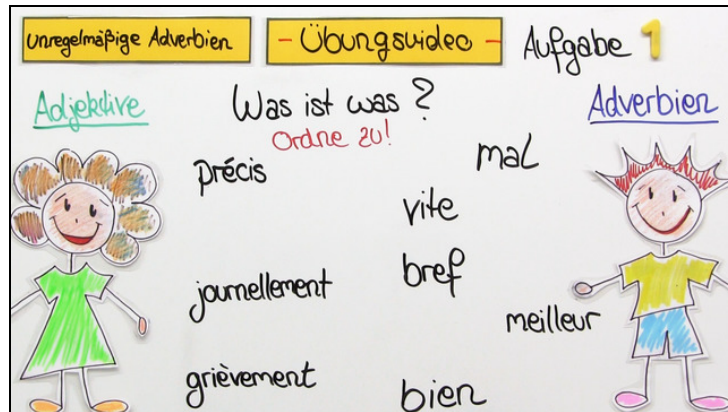 unregelmäßige Adverbien
- Übungsvideo -
Aufgabe 1
Adjektive
Was ist was?
Adverbien
Ordne zu!
précis
mal
vite
journellement
bref
meilleur
grièvement
bien